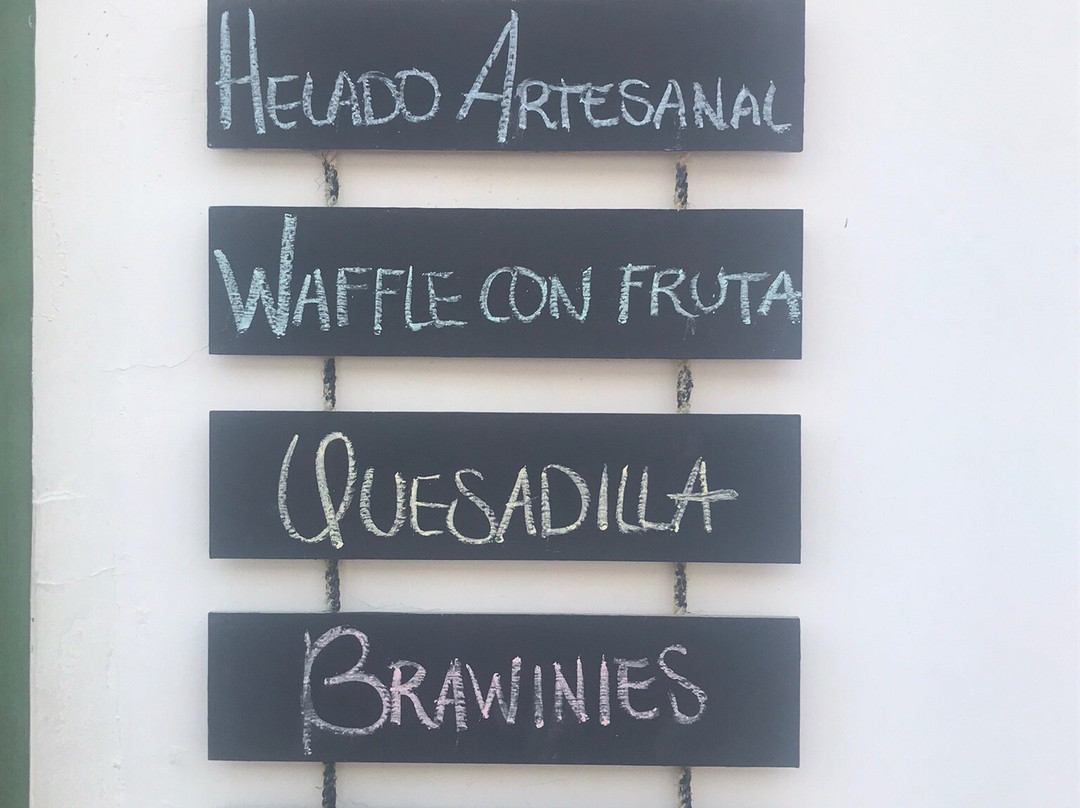 HELADO ARTESANAL
WAFFLE CON FRUTA
QUESADILLA
BRAWINIES